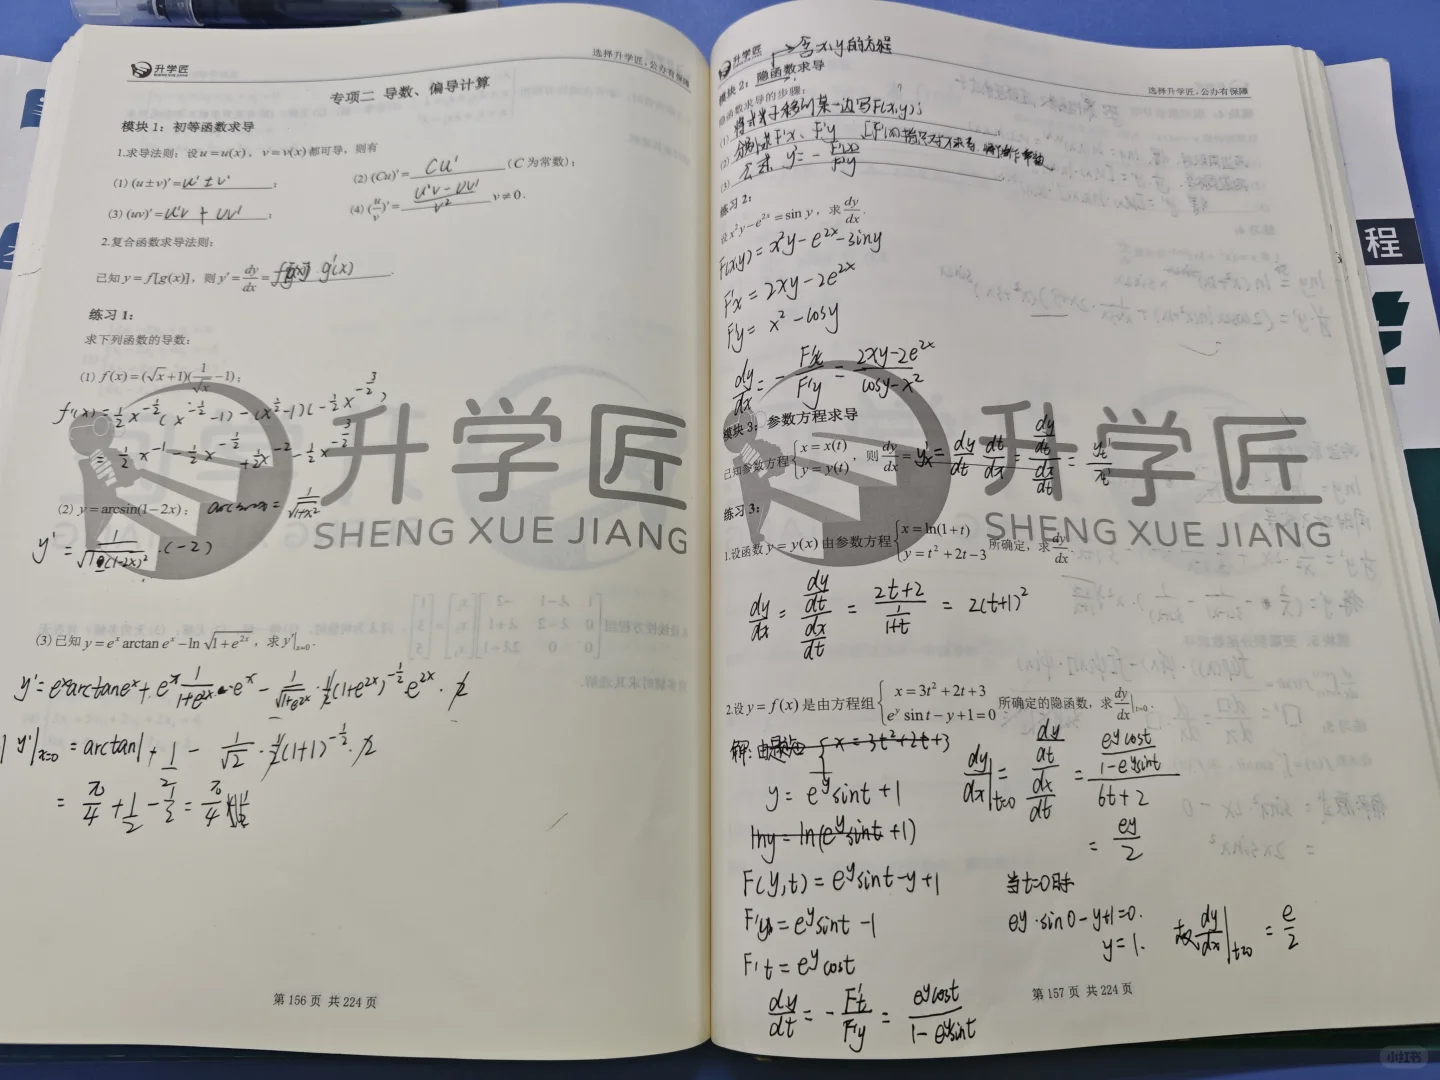 升学匠
SHENG XUE JIANG
选择升学匠,公办有保障
专项二 导数、偏导计算
模块1：初等函数求导
1.求导法则：设u=u(x)，v=v(x)都可导，则有
(1) (u±v)'=u'±v'；
(2) (Cu)'=Cu'(C为常数)；
(3) (uv)'=u'v+uv'；
(4) (u/v)'=(u'v-uv')/v² v≠0.
2.复合函数求导法则：
已知y=f[g(x)]，则y'=dy/dx=f'[g(x)]·g'(x).
练习1：
求下列函数的导数：
(1) f(x)=(√x+1)(1/√x-1)；
(2) y=arcsin(1-2x)；
y'=
·(-2)
(3)已知y=eˣarctan eˣ-ln√(1+e²ˣ)，求y'|x=0.
y'=eˣarctaneˣ+eˣ·1/(1+e²ˣ)·eˣ-1/√(1+e²ˣ)·1/2(1+e²ˣ)^(-1/2)·e²ˣ·2
y'|x=0=arctan1+1/2-1/√2·1/2(1+1)^(-1/2)·2
=π/4+1/2-1/2=π/4
第 156 页 共 224 页
升学匠
SHENG XUE JIANG
升学匠
→含x,y的方程
选择升学匠,公办有保障
模块2：隐函数求导
隐函数求导的步骤：
(1) 将式子移到某一边写F(x,y)；
(2) 分别求F'x、F'y
(3) 公式 y'=-F'x/F'y
练习2：
设x²y-e²ˣ=sin y，求dy/dx.
F(x,y)=x²y-e²ˣ-siny
F'x=2xy-2e²ˣ
F'y=x²-cosy
dy/dx=-F'x/F'y=(2xy-2e²ˣ)/(cosy-x²)
模块3：参数方程求导
已知参数方程{x=x(t) y=y(t)，则dy/dx=y'x=dy/dt dt/dx=(dy/dt)/(dx/dt)=yt'/xt'
练习3：
1.设函数y=y(x)由参数方程{x=ln(1+t) y=t²+2t-3所确定，求dy/dx
dy/dx=(dy/dt)/(dx/dt)=(2t+2)/(1/(1+t))=2(t+1)²
2.设y=f(x)是由方程组{x=3t²+2t+3 eʸsint-y+1=0所确定的隐函数，求dy/dx|t=0.
解:由题 {x=3t²+2t+3
y=eʸsint+1
lny=ln(eʸsint+1)
F(y,t)=eʸsint-y+1
F'y=eʸsint-1
F't=eʸcost
dy/dt=-F't/F'y=eʸcost/(1-eʸsint)
dy/dx|t=0=(dy/dt)/(dx/dt)=(eʸcost/(1-eʸsint))/(6t+2)
=eʸ/2
当t=0时
eʸ·sin0-y+1=0.
y=1.
故dy/dx|t=0=e/2
第 157 页 共 224 页
升学匠
SHENG XUE JIANG
程
小红书